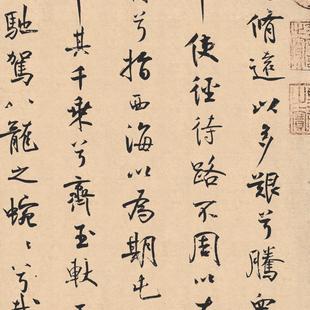 脩遠以多艱兮騰眾
使徑待路不周以左
兮指西海以為期屯
其千乘兮齊玉軑
馳駕八龍之蜿〻兮載